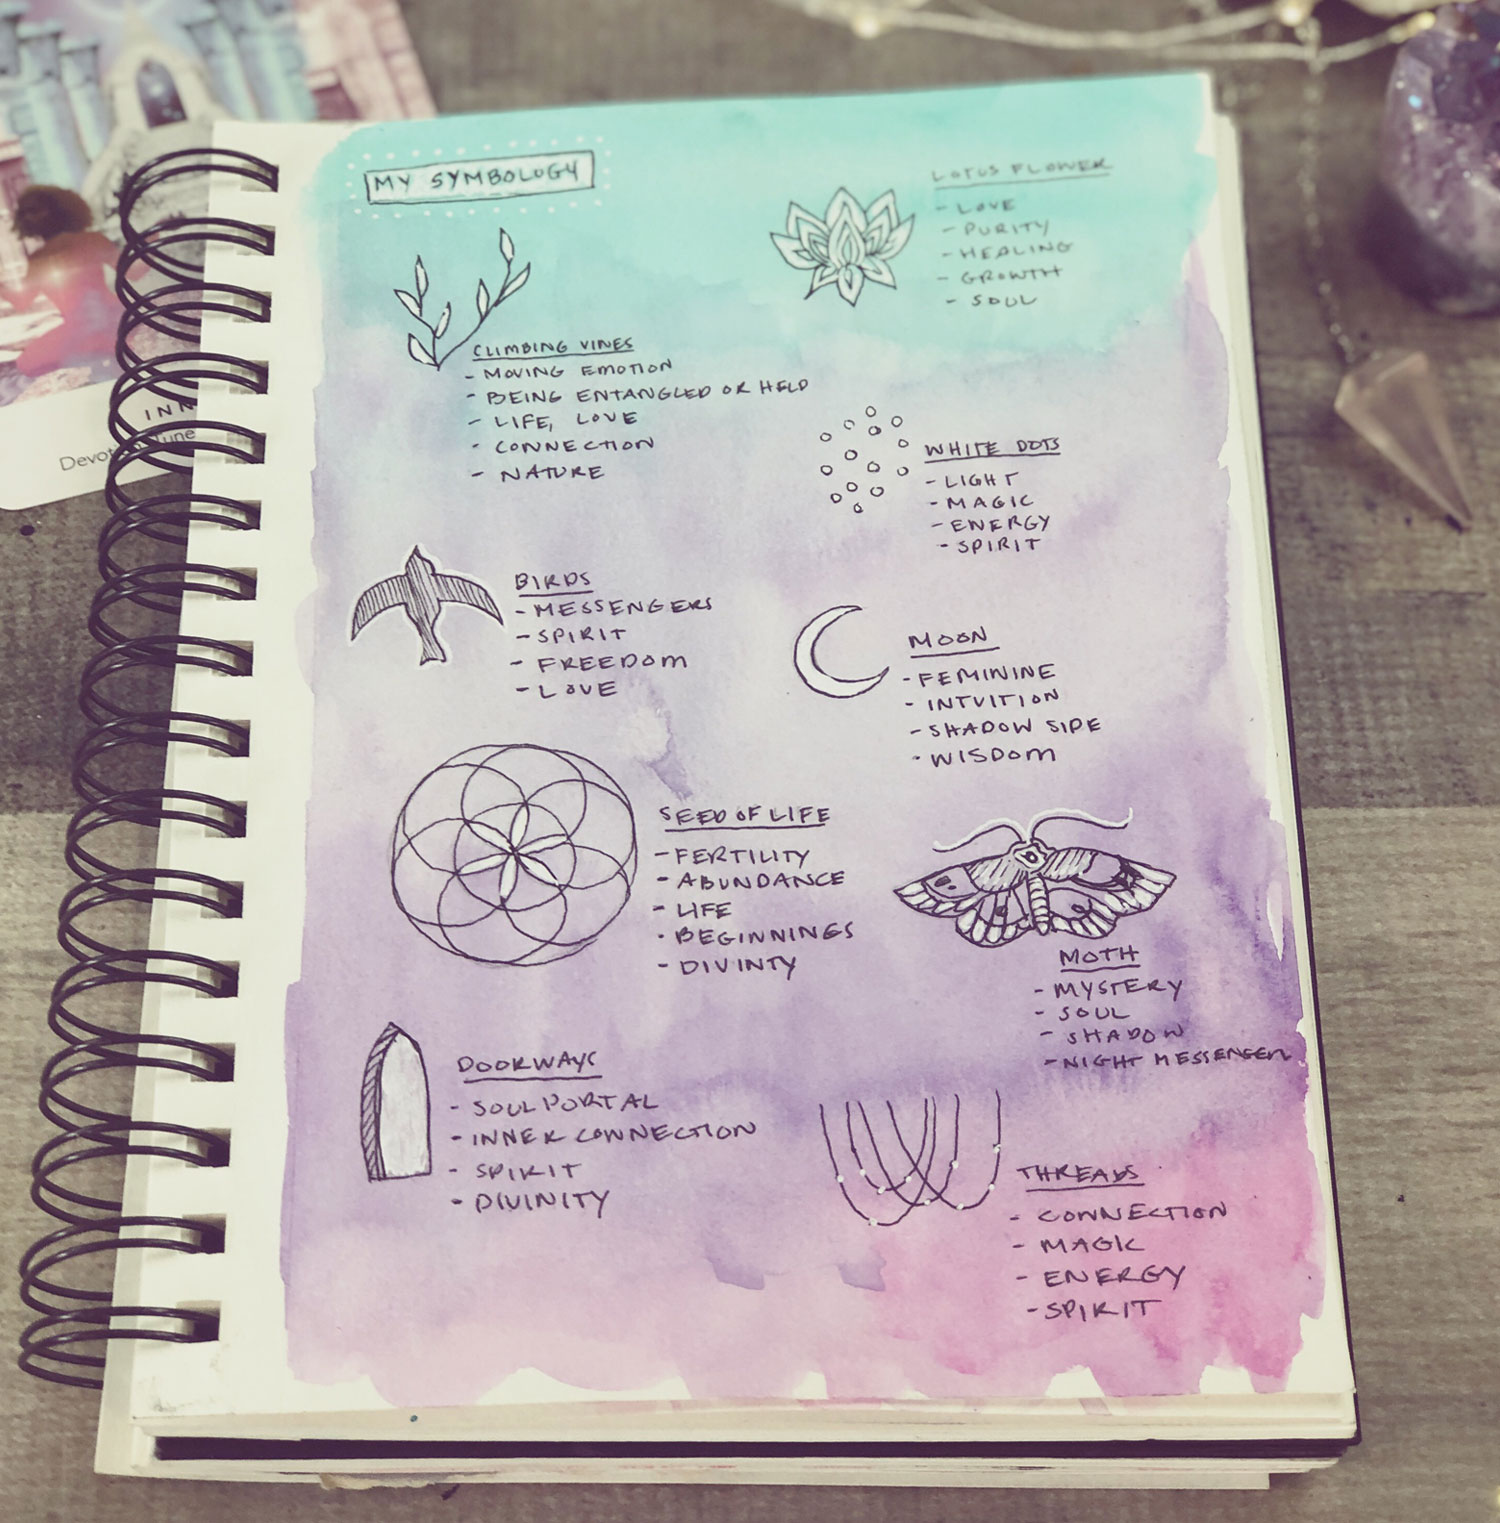 MY SYMBOLOGY
LOTUS FLOWER
- LOVE
- PURITY
- HEALING
- GROWTH
- SOUL
CLIMBING VINES
- MOVING EMOTION
- BEING ENTANGLED OR HELD
- LIFE, LOVE
- CONNECTION
- NATURE
WHITE DOTS
- LIGHT
- MAGIC
- ENERGY
- SPIRIT
BIRDS
- MESSENGERS
- SPIRIT
- FREEDOM
- LOVE
MOON
- FEMININE
- INTUITION
- SHADOW SIDE
- WISDOM
SEED OF LIFE
- FERTILITY
- ABUNDANCE
- LIFE
- BEGINNINGS
- DIVINTY
MOTH
- MYSTERY
- SOUL
- SHADOW
- NIGHT MESSENGER
DOORWAYS
- SOUL PORTAL
- INNER CONNECTION
- SPIRIT
- DIVINITY
THREADS
- CONNECTION
- MAGIC
- ENERGY
- SPIRIT
INN